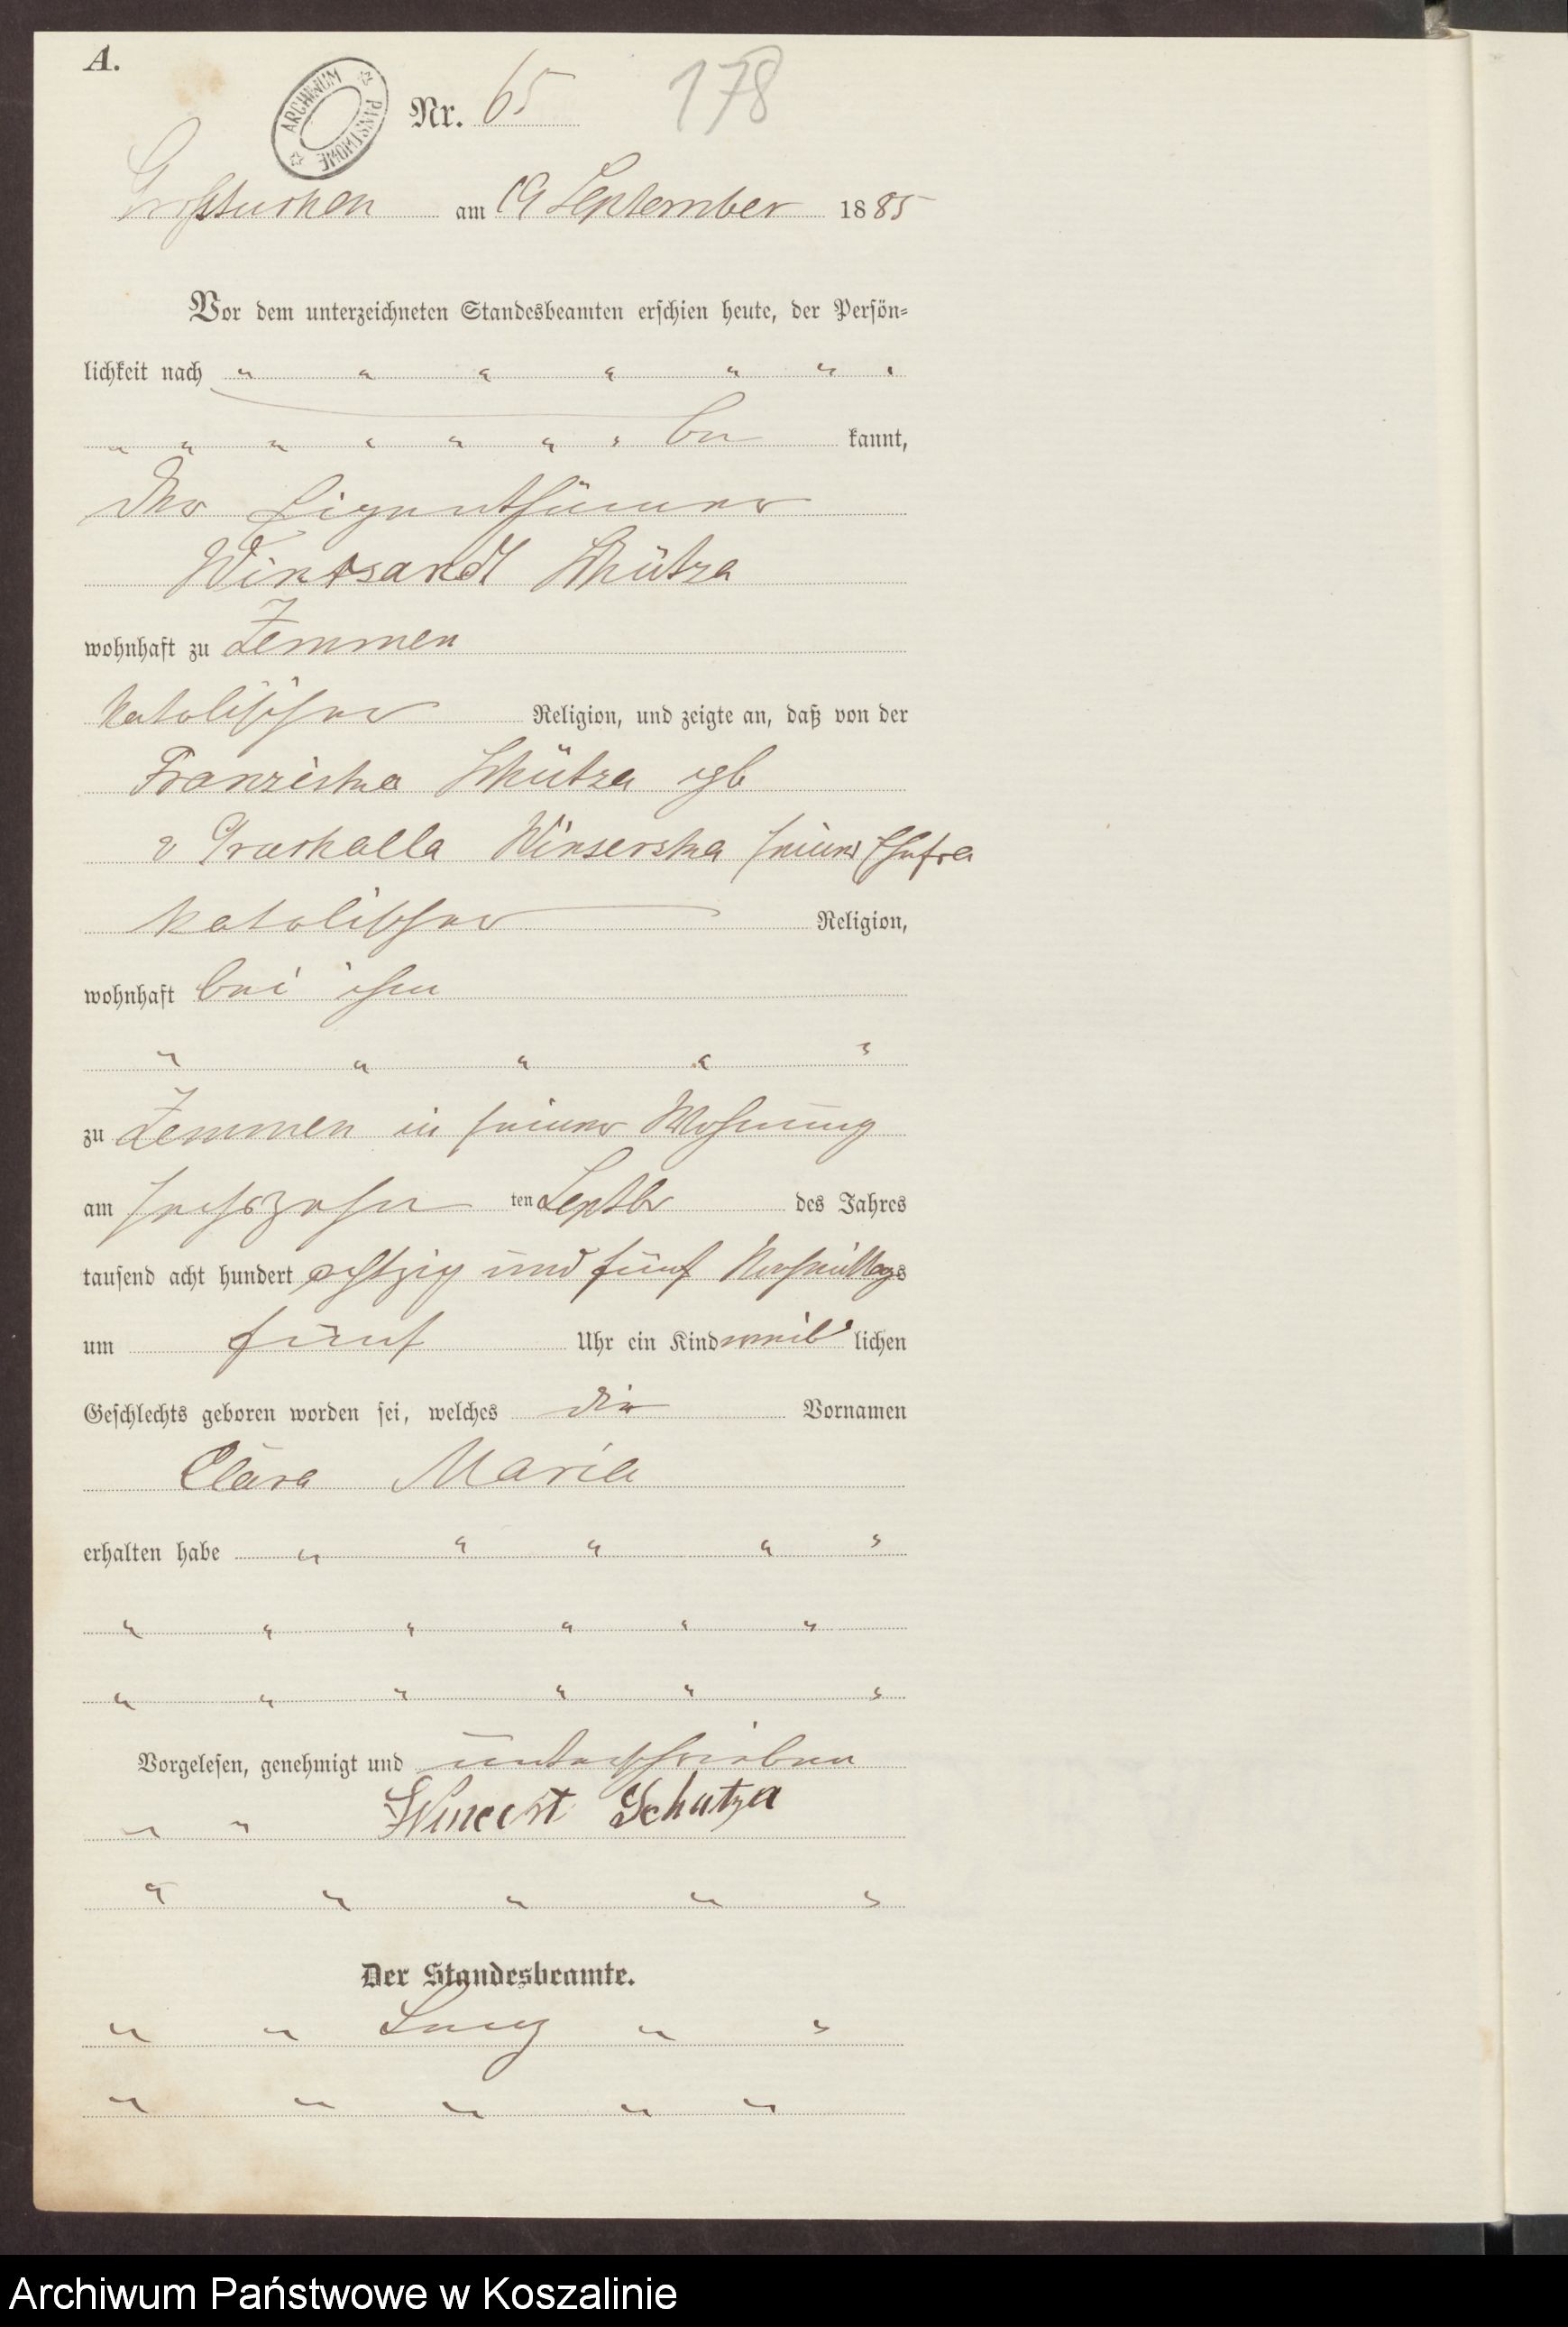 A.
ARCHIWUM PAŃSTWOWE
Nr. 65 178
Großtuchen am 19 September 1885
Vor dem unterzeichneten Standesbeamten erschien heute, der Persön=
lichkeit nach " " " " " " "
" " " " " " " be kannt,
der Eigenthümer
Schütza
wohnhaft zu Zemmen
katolischer Religion, und zeigte an, daß von der
Franziska Schütza geb
v seiner Ehefra
katolischer Religion,
wohnhaft bei ihm
" " " " "
zu Zemmen in seiner Wohnung
am sechszehn ten Septbr des Jahres
tausend acht hundert achtzig und fünf Nachmittags
um fünf Uhr ein Kind weib lichen
Geschlechts geboren worden sei, welches die Vornamen
Clara Maria
erhalten habe " " " " "
" " " " " "
" " " " " "
Vorgelesen, genehmigt und unterschrieben
" " Schutza
" " " " "
Der Standesbeamte.
" " " "
" " " " "
Archiwum Państwowe w Koszalinie